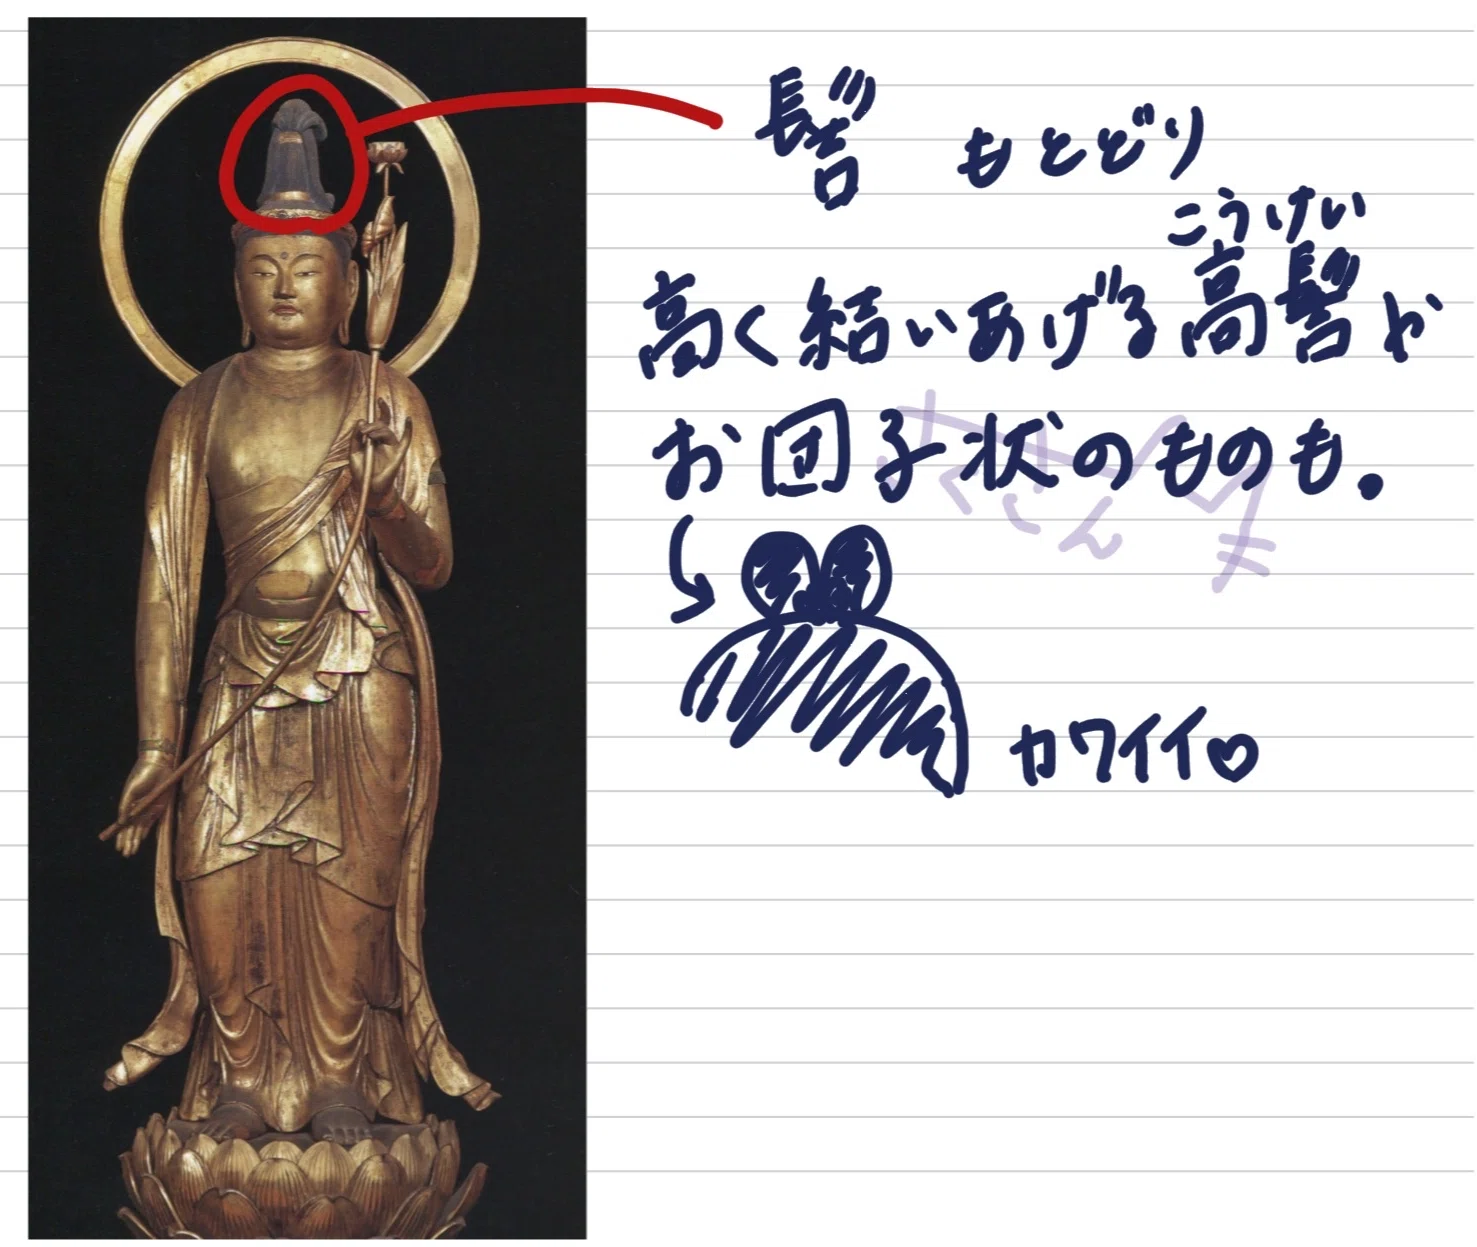 髻 もとどり
こうけい
高く結いあげる高髻や
お団子状のものも。
くさん
カワイイ♡